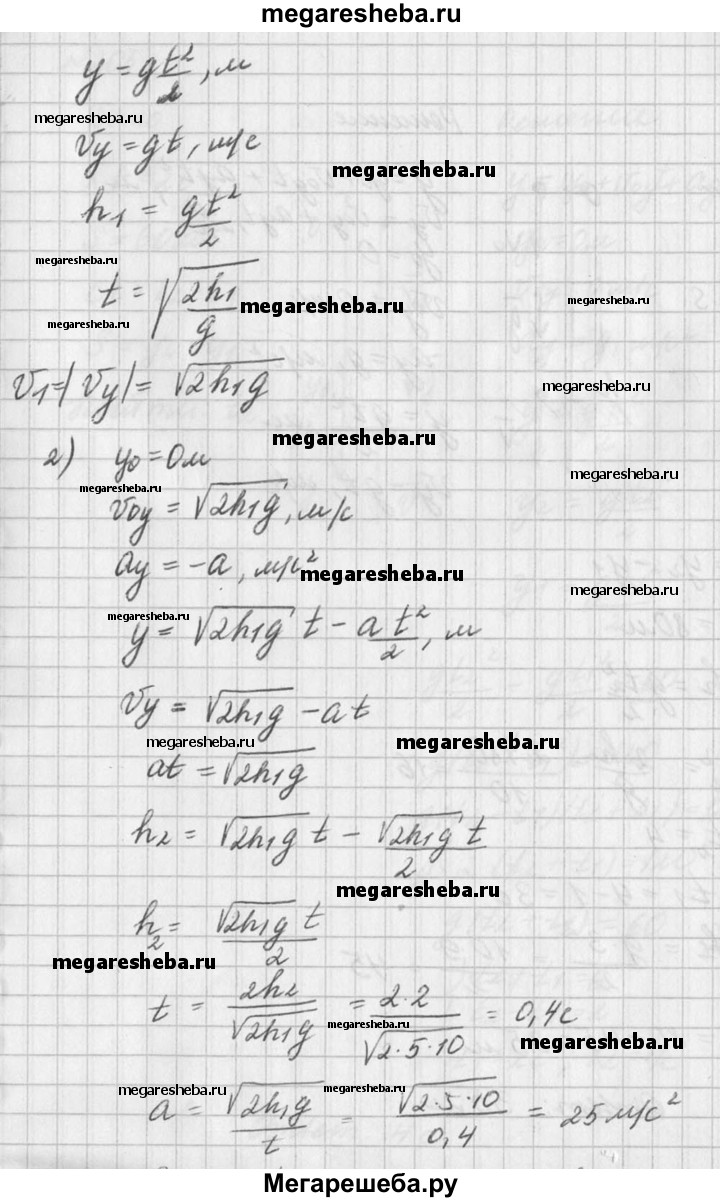 megaresheba.ru
y = gt²/2, м
megaresheba.ru
vy = gt, м/с
megaresheba.ru
h₁ = gt²/2
megaresheba.ru
t = √(2h₁/g)
megaresheba.ru
megaresheba.ru
megaresheba.ru
v₁=|vy|= √2h₁g
megaresheba.ru
megaresheba.ru
2) y₀ = 0м
megaresheba.ru
megaresheba.ru
v₀y = √2h₁g, м/с
ay = -a, м/с²
megaresheba.ru
megaresheba.ru
megaresheba.ru
y = √2h₁g t - at²/2, м
vy = √2h₁g - at
megaresheba.ru
megaresheba.ru
at = √2h₁g
h₂ = √2h₁g t - √2h₁g t/2
megaresheba.ru
h₂ = √2h₁g t/2
megaresheba.ru
t = 2h₂/√2h₁g = 2·2/√2·5·10 = 0,4с
megaresheba.ru
megaresheba.ru
megaresheba.ru
megaresheba.ru
a = √2h₁g/t = √2·5·10/0,4 = 25 м/с²
Мегарешеба.ру